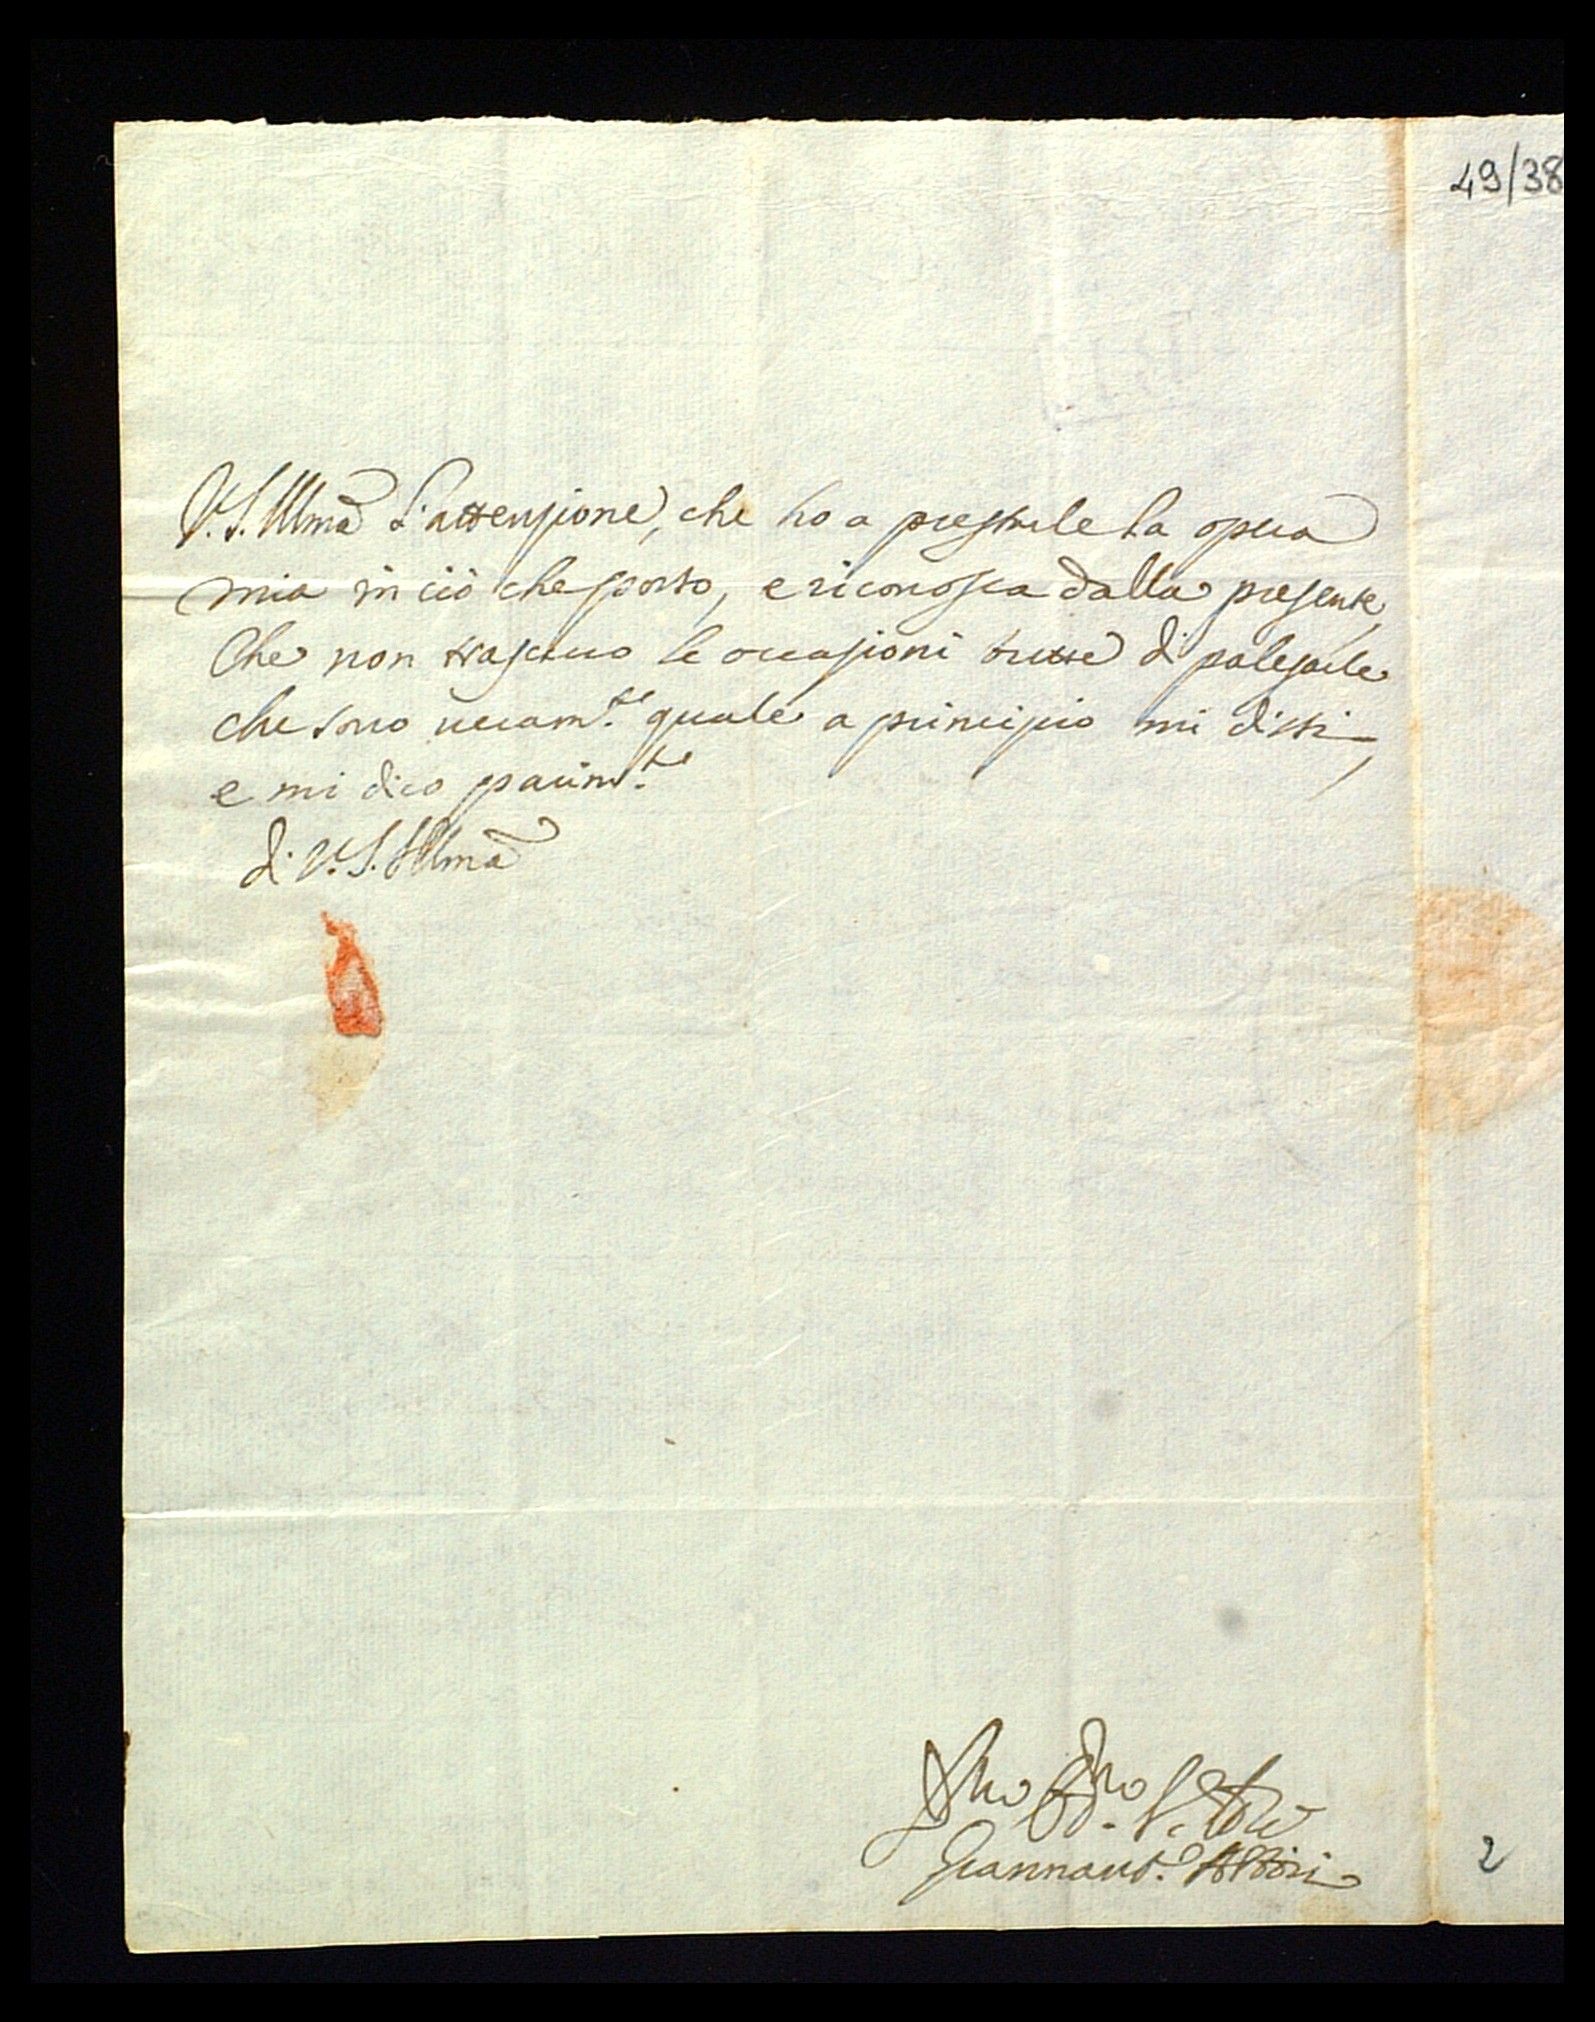 49/38
V. S. Illma L'attenzione, che ho a prestarle la opera
mia in ciò che posso, e riconosca dalla presente,
Che non trascuro le occasioni tutte di palesarle
che sono veram.te quale a principio mi dissi,
e mi dico parim.te
di V. S. Illma
S.
Giannant.o
2